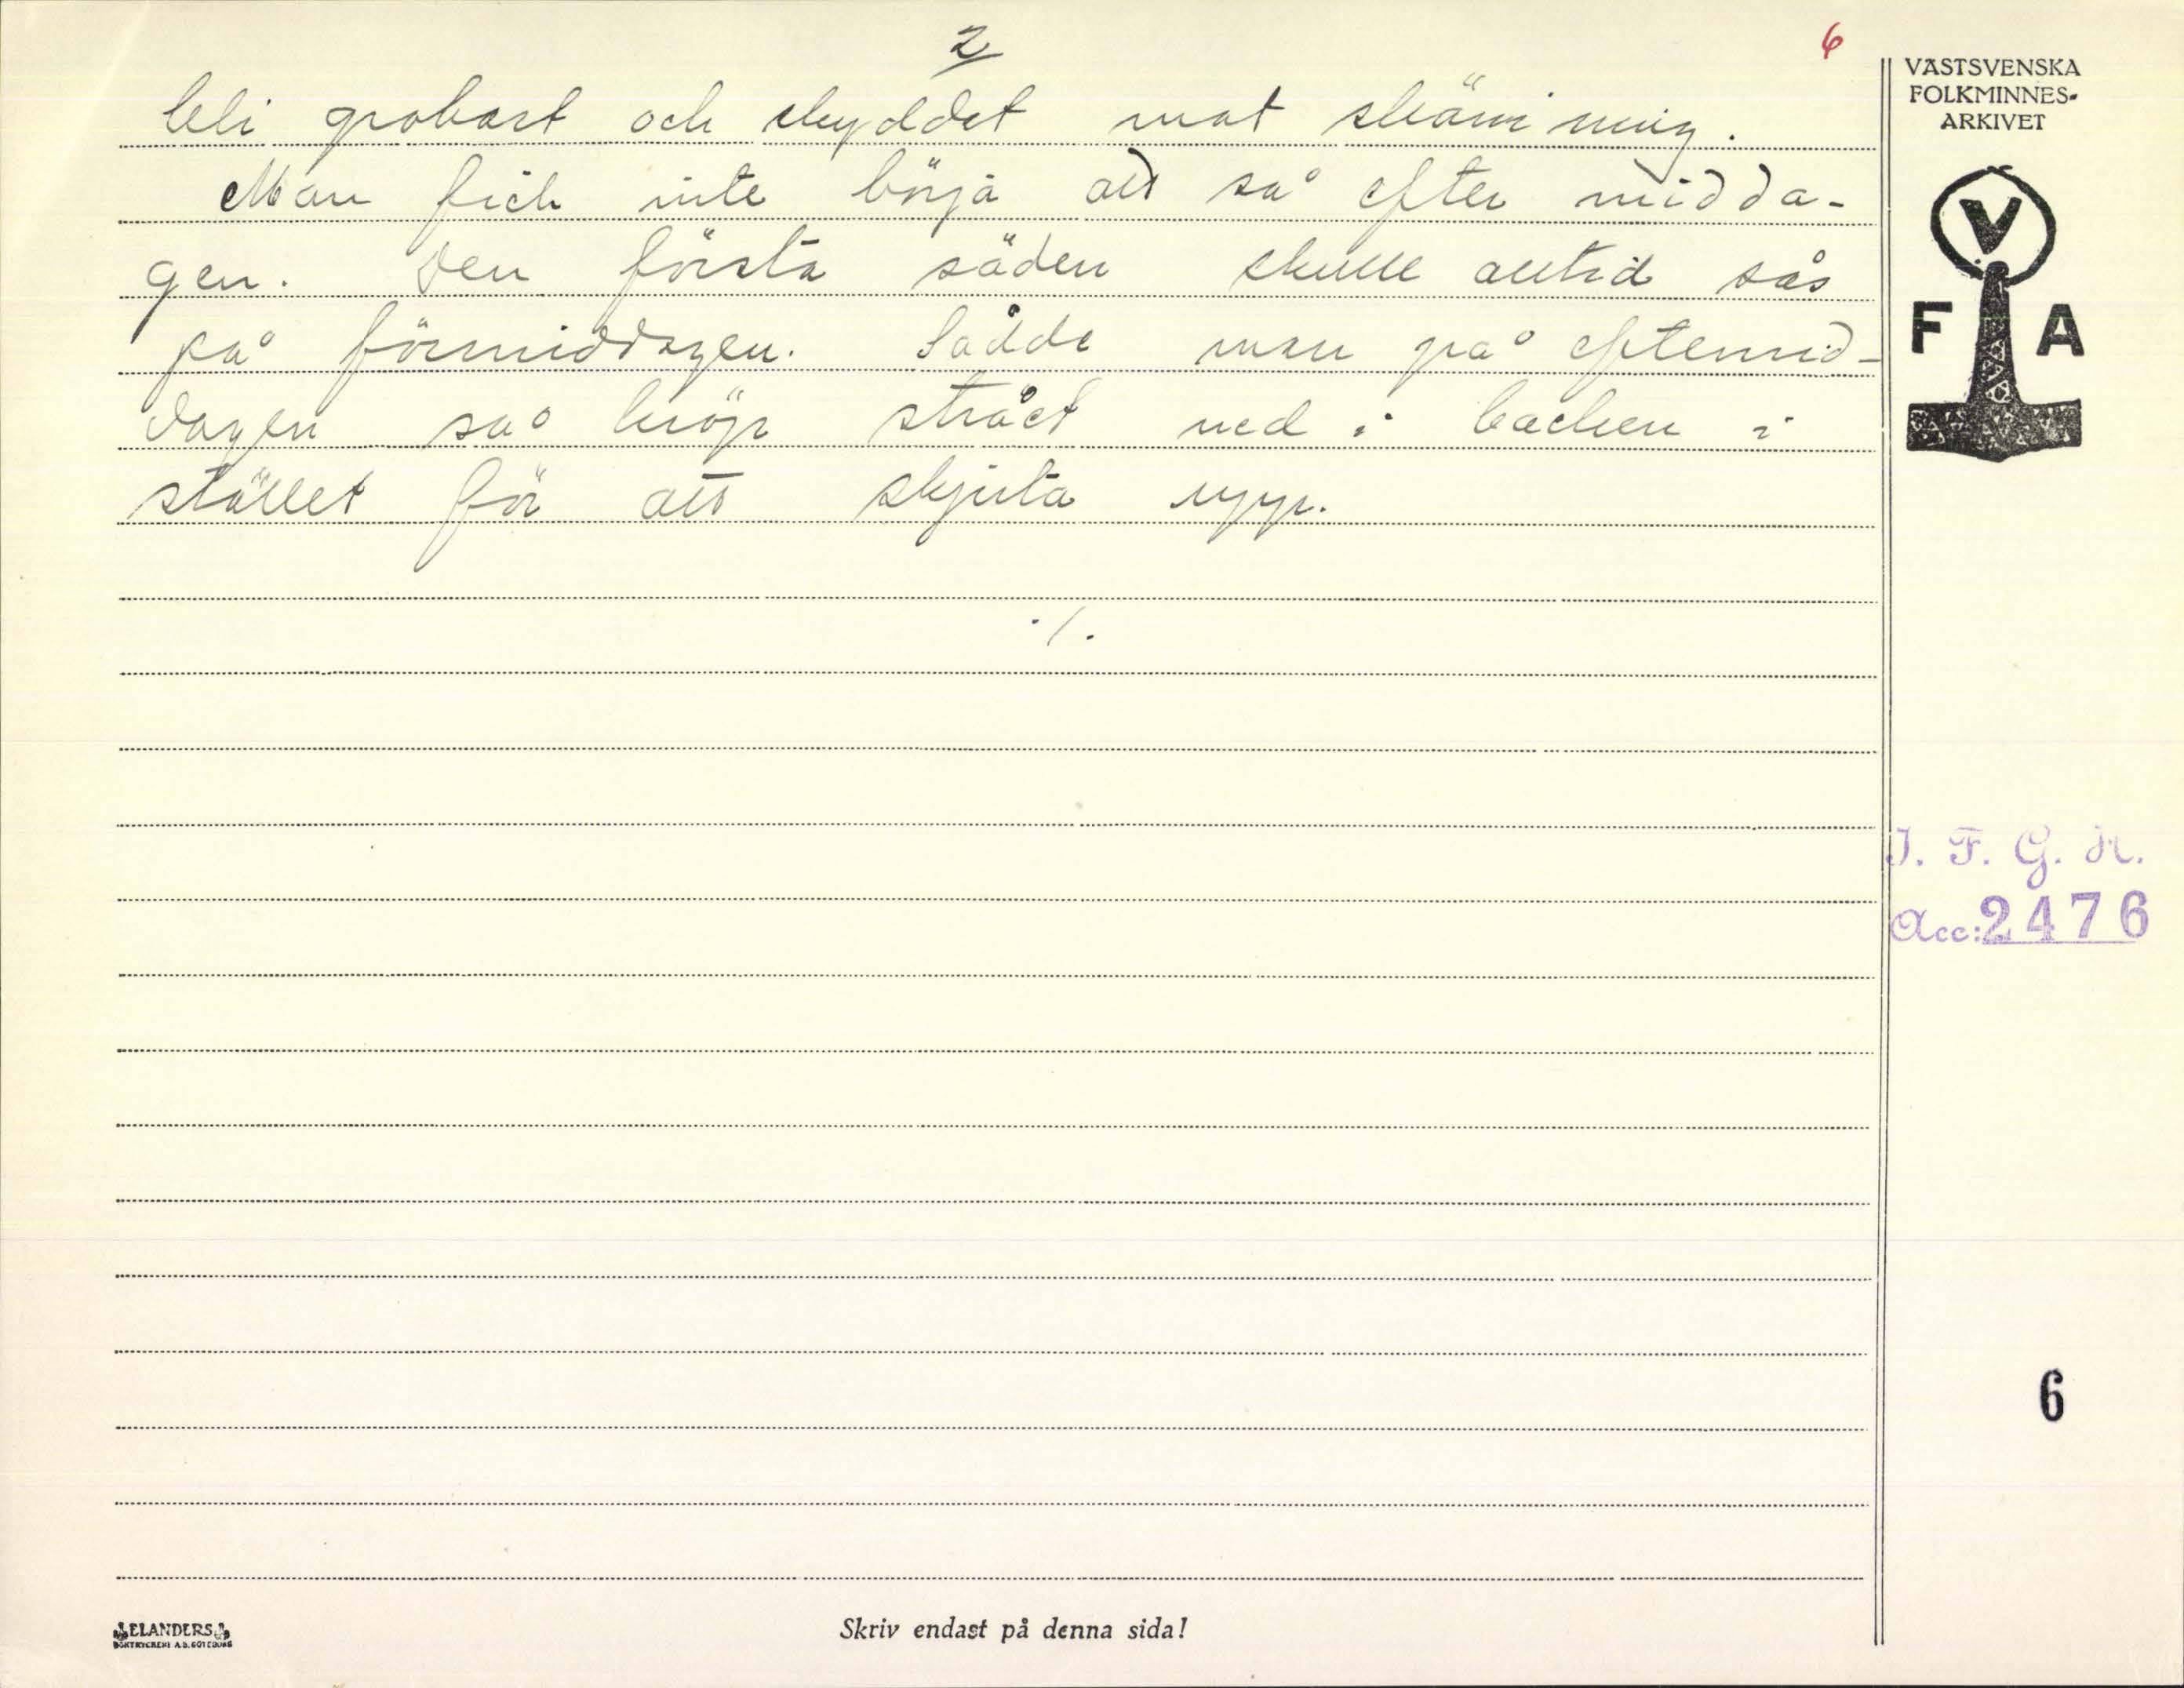 2
6
bli grobart och skyddet mot skämning.
Man fick inte börja att så efter midda-
gen. Den första säden skulle alltid sås
på förmiddagen. Sådde man på eftermid-
dagen så kröp strået ned i backen i
stället för att skjuta upp.
./.
VÄSTSVENSKA
FOLKMINNES-
ARKIVET
V
F A
I. F. G. H.
Acc: 2476
6
ELANDERS
BOKTRYCKERI A.B. GÖTEBORG
Skriv endast på denna sida!